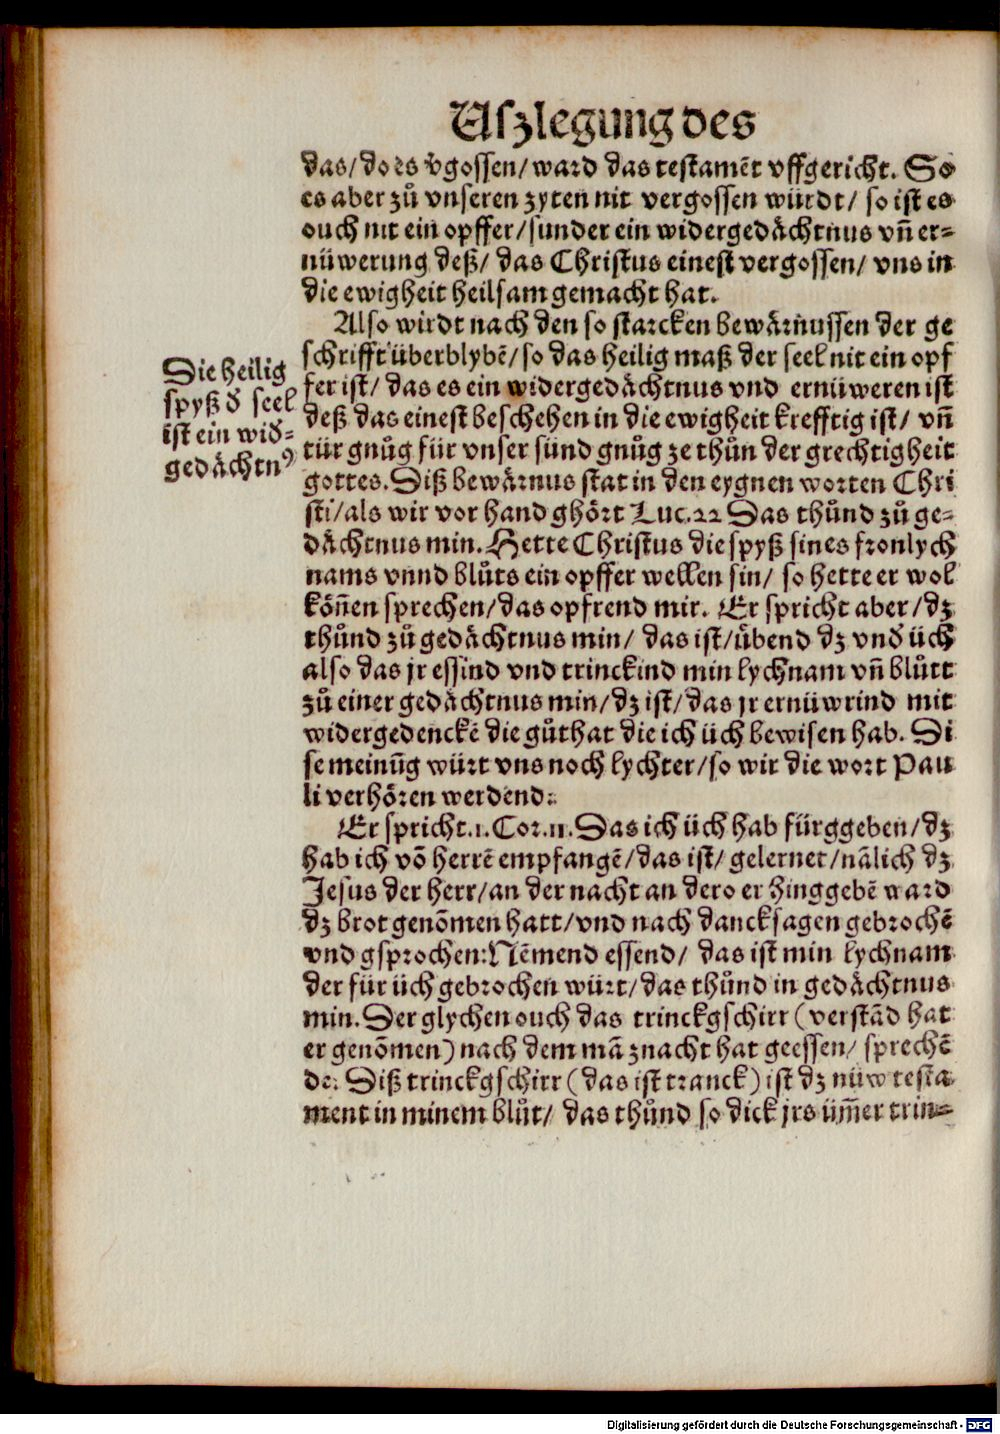 Uſzlegung des
das/ do es v̄gossen/ ward das testamēt vffgericht. So
es aber zů vnseren zyten nit vergossen würdt/ so ist es
ouch nit ein opffer/ sunder ein widergedächtnus vn̄ er⸗
nüwerung deß/ das Christus einest vergossen/ vns in
die ewigheit heilsam gemacht hat.
Also wirdt nach den so starcken bewärnussen der ge
schrifft überblybē/ so das heilig maß der seel nit ein opf
fer ist/ das es ein widergedächtnus vnd ernüweren ist
deß das einest beschehen in die ewigheit krefftig ist/ vn̄
tür gnůg für vnser sünd gnůg ze thůn der grechtigheit
gottes. Diß bewärnus stat in den eygnen worten Chri
sti/ als wir vor hand ghört Luc. 22 Das thůnd zů ge⸗
dächtnus min. Hette Christus die spyß sines fronlych
nams vnnd blůts ein opffer wellen sin/ so hette er wol
kön̄en sprechen/ das opfrend mir. Er spricht aber/ dz
thůnd zů gedächtnus min/ das ist/ übend dz vnd̄ üch
also das jr essind vnd trinckind min lychnam vn̄ blůtt
zů einer gedächtnus min/ dz ist/ das jr ernüwrind mit
widergedenckē die gůthat die ich üch bewisen hab. Di
se meinūg würt vns noch lychter/ so wir die wort Pau
li verhören werdend:
Er spricht. 1. Cor. 11. Das ich üch hab fürggeben/ dz
hab ich vō herrē empfangē/ das ist/ gelernet/ nālich dz
Jesus der herr/ an der nacht an dero er hinggebē ward
dz brot genōmen hatt/ vnd nach dancksagen gebrochē
vnd gsprochen: Nēmend essend/ das ist min lychnam
der für üch gebrochen würt/ das thůnd in gedächtnus
min. Der glychen ouch das trinckgschirr (verstād hat
er genōmen) nach dem mā znacht hat geessen/ sprechē
de: Diß trinckgschirr (das ist tranck) ist dz nüw testa
ment in minem blůt/ das thůnd so dick jrs üm̄er trin⸗
Die heilig
spyß d̄ seel
ist ein wid̄⸗
gedächtnꝰ
Digitalisierung gefördert durch die Deutsche Forschungsgemeinschaft - DFG